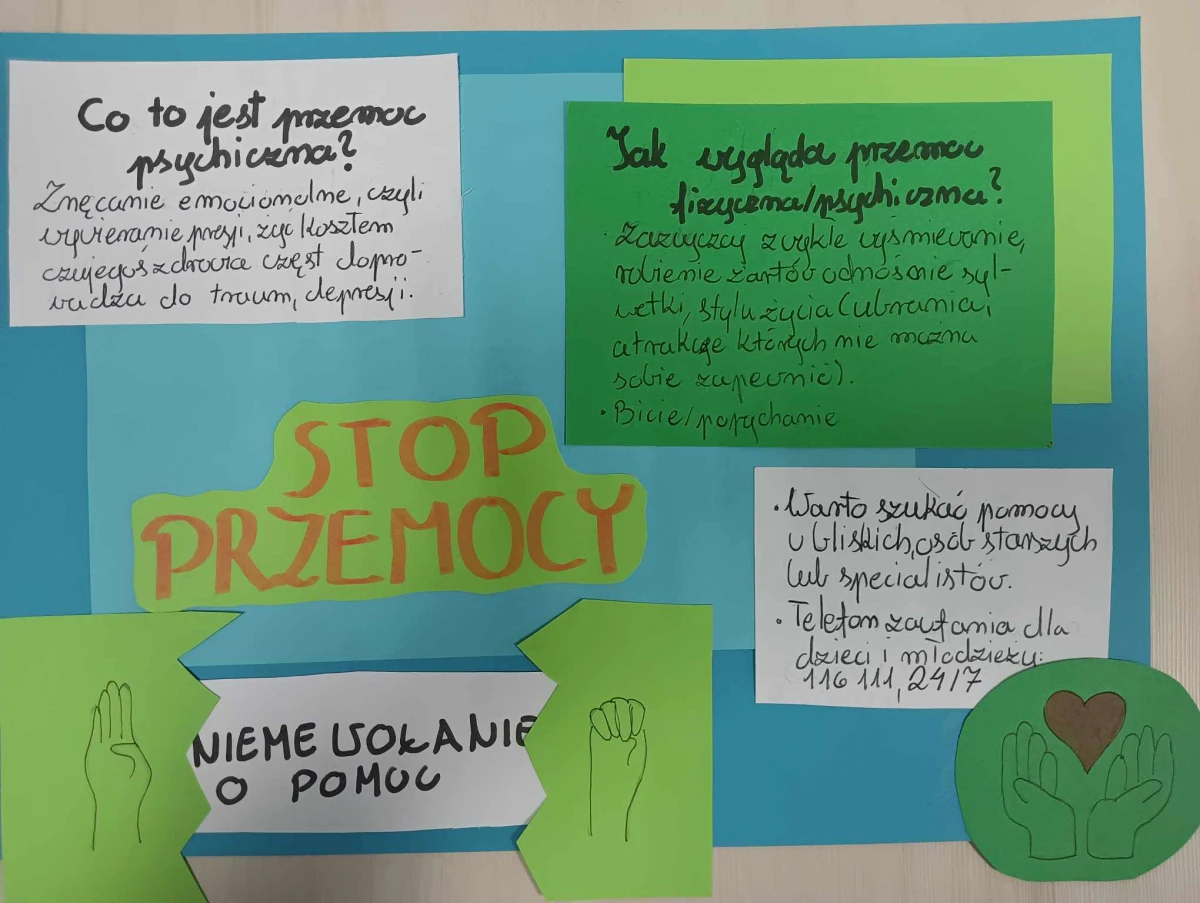 Co to jest przemoc
psychiczna?
Znęcanie emocjonalne, czyli
wywieranie presji, żyć kosztem
czyjegoś zdrowia częst dopro-
wadza do traum, depresji.
Jak wygląda przemoc
fizyczna/psychiczna?
· Zazwyczaj zwykle wyśmiewanie,
robienie żartów odnośnie syl-
wetki, stylu życia (ubrania,
atrakcje których nie można
sobie zapewnić).
· Bicie/popychanie
STOP
PRZEMOCY
· Warto szukać pomocy
u bliskich, osób starszych
lub specialistów.
· Telefon zaufania dla
dzieci i młodzieży:
116 111, 24/7
NIEME WOŁANIE
O POMOC